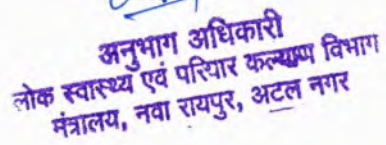 अनुभाग अधिकारी
लोक स्वास्थ्य एवं परियार कल्याण विभाग
मंत्रालय, नवा रायपुर, अटल नगर